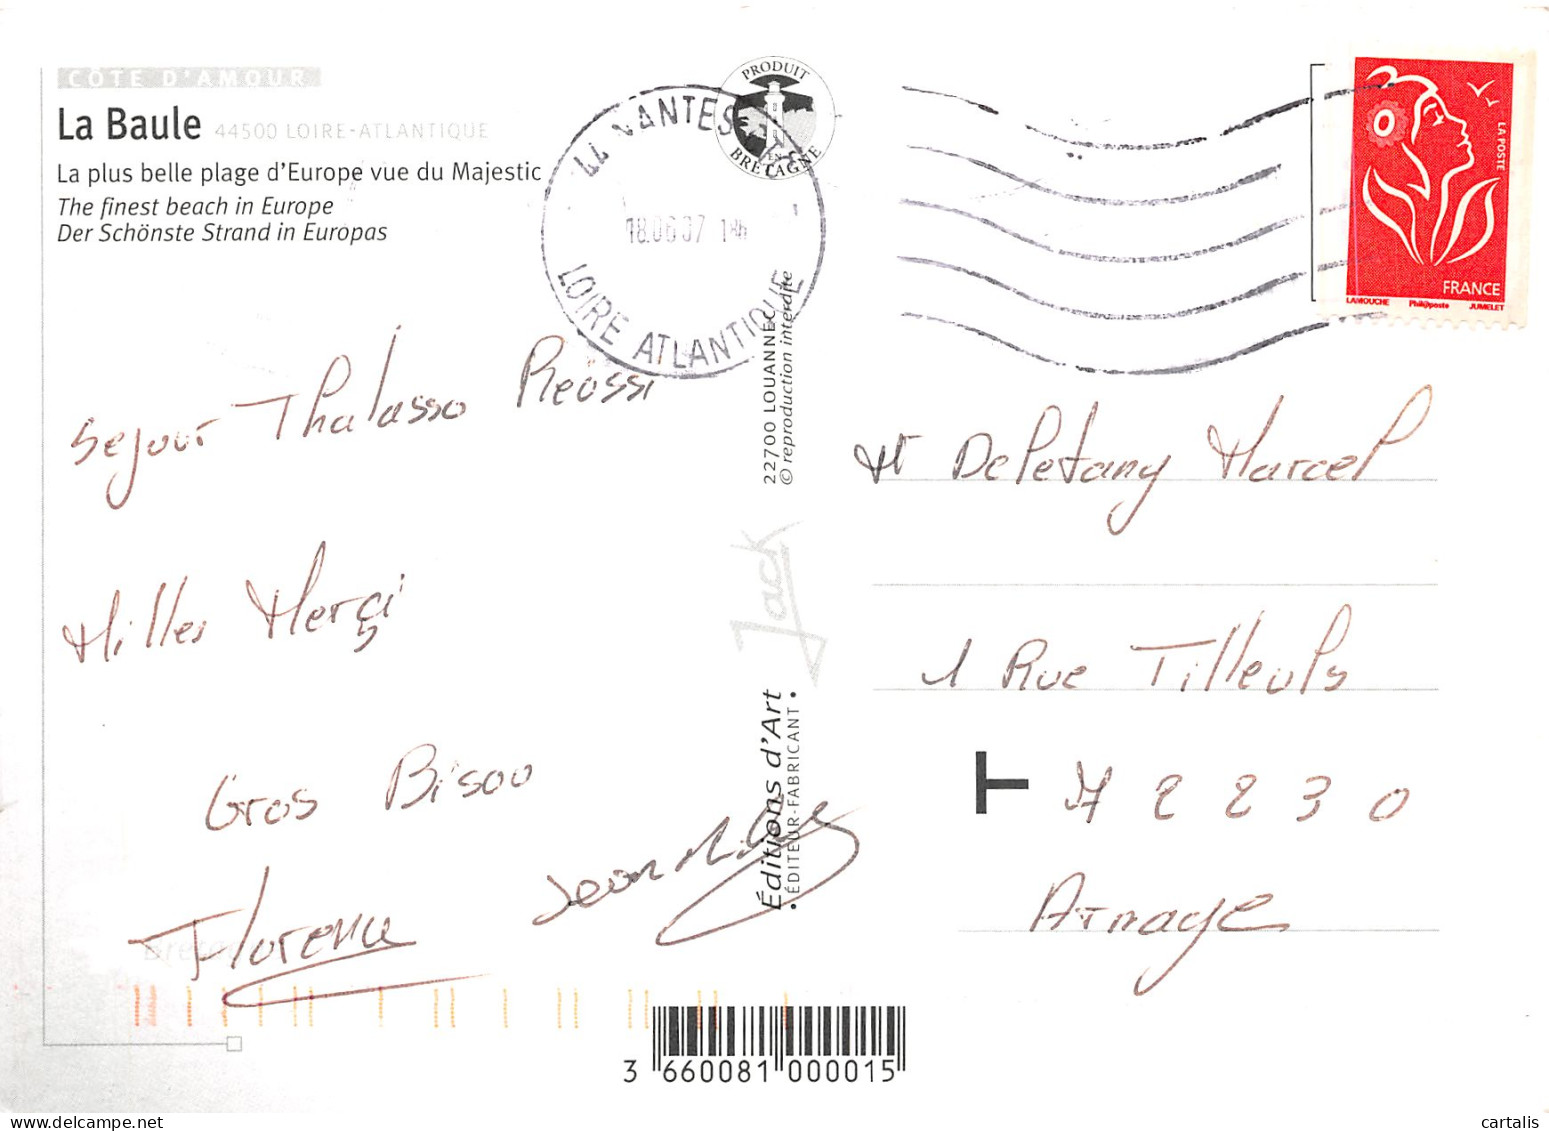 CÔTE D'AMOUR
La Baule 44500 LOIRE-ATLANTIQUE
La plus belle plage d'Europe vue du Majestic
The finest beach in Europe
Der Schönste Strand in Europas
PRODUIT
EN
BRETAGNE
NANTES
18.06.07
LOIRE ATLANTIQUE
LA POSTE
FRANCE
LAMOUCHE Phil@poste JUMELET
Sejour Thalasso Reössi
Milles Merçi
Gros Bisoo
Florence
Jean
22700 LOUANNEC
© reproduction interdite
Jack
Éditions d'Art
• ÉDITEUR-FABRICANT •
Mr Deletang Marcel
1 Rue Tilleuls
T 72230
Arnage
3 660081 000015
cartalis